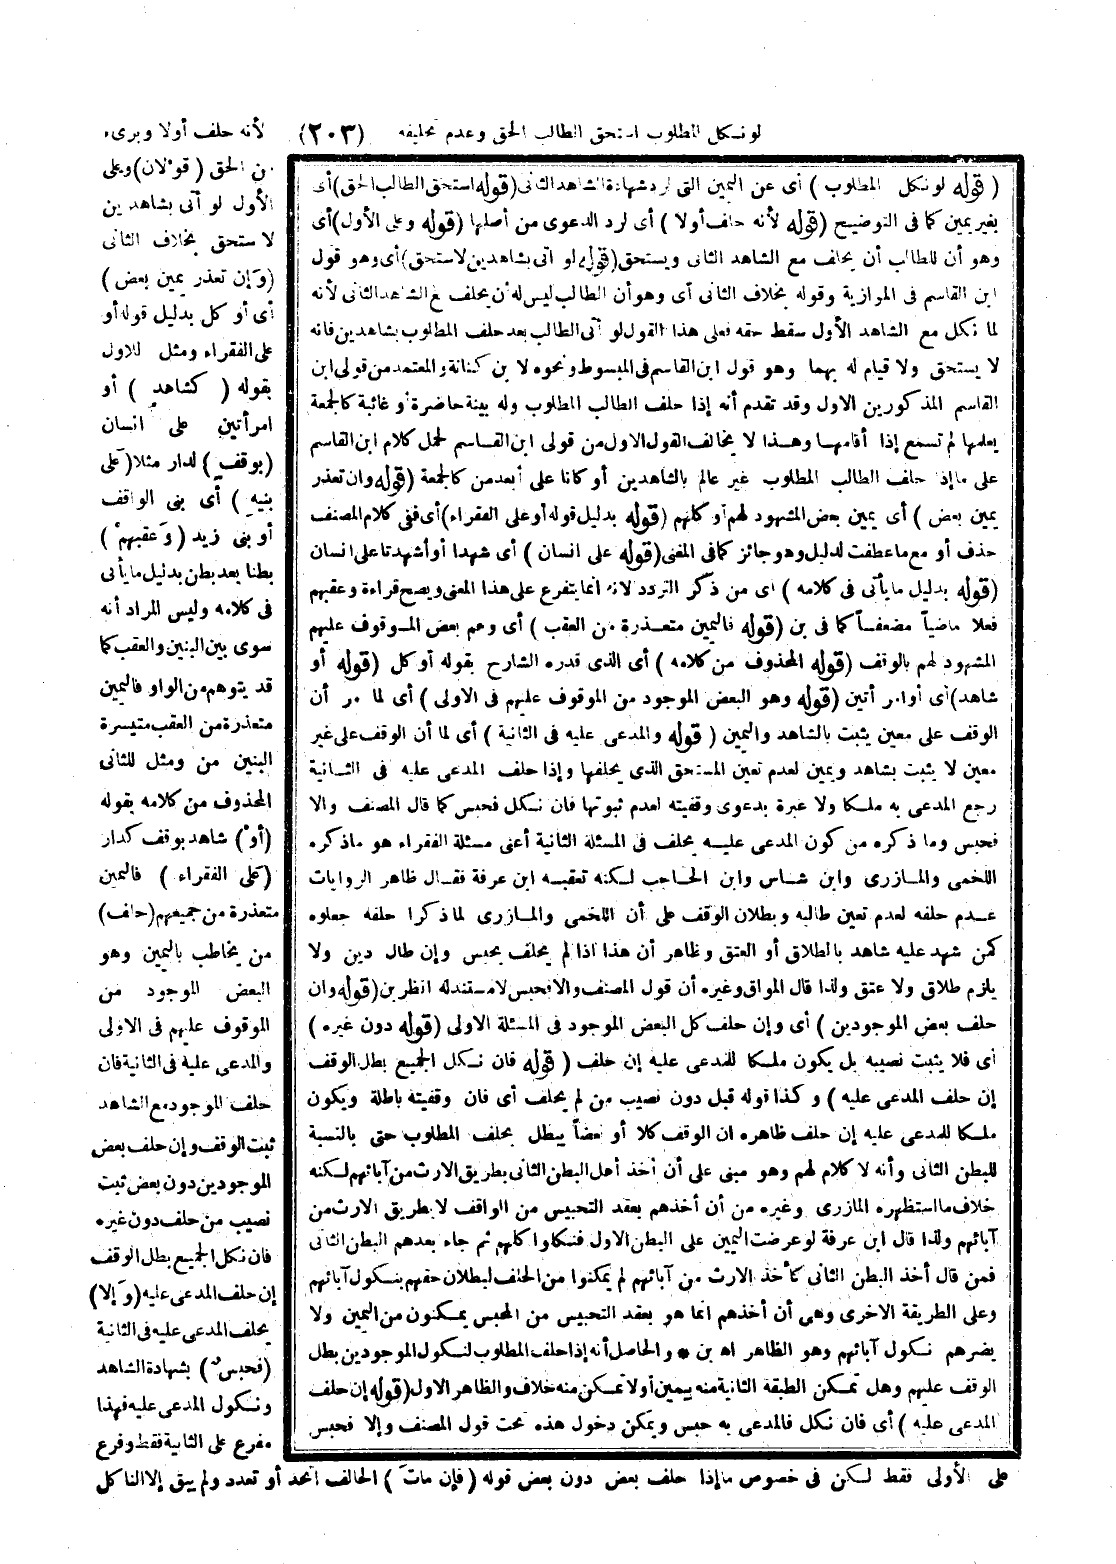 لو نكل المطلوب استحق الطالب الحق وعدم تحليفه (٢٠٣)
لأنه حلف أولا وبرىء
من الحق (قولان) وعلى
الأول لو أتى بشاهدين
لاستحق بخلاف الثانى
(وَإن تعذر يمين بعض)
أى أو كل بدليل قوله أو
على الفقراء ومثل للاول
بقوله (كشاهدٍ) أو
امرأتين على انسان
(بوقفٍ) لدار مثلا (عَلى
بنيهِ) أى بنى الواقف
أو بنى زيد (وَعقبهمْ)
بطنا بعد بطن بدليل ما يأتى
فى كلامه وليس المراد أنه
سوى بين البنين والعقب كما
قد يتوهم من الواو فاليمين
متعذرة من العقب متيسرة
البنين من ومثل للثانى
المحذوف من كلامه بقوله
(أو) شاهد بوقف كدار
(عَلى الفقراء) فاليمين
متعذرة من جميعهم (حلف)
من يخاطب باليمين وهو
البعض الموجود من
الموقوف عليهم فى الاولى
والمدعى عليه فى الثانية فان
حلف الموجود مع الشاهد
ثبت الوقف وإن حلف بعض
الموجودين دون بعض ثبت
نصيب من حلف دون غيره
فان نكل الجميع بطل الوقف
إن حلف المدعى عليه (وَإلا)
يحلف المدعى عليه فى الثانية
(فحبسٌ) بشهادة الشاهد
ونكول المدعى عليه فهذا
مفرع على الثانية فقط وفرع
على الأولى فقط لكن فى خصوص ما إذا حلف بعض دون بعض قوله (فإن ماتَ) الحالف اتحد أو تعدد ولم يبق إلا الناكل
(قوله لو نكل المطلوب) أى عن اليمين التى لرد شهادة الشاهد الثانى (قوله استحق الطالب الحق) أى
بغير يمين كما فى التوضيح (قوله لأنه حلف أولا) أى لرد الدعوى من أصلها (قوله وعلى الأول) أى
وهو أن للطالب أن يحلف مع الشاهد الثانى ويستحق (قوله لو اتى بشاهدين لاستحق) أى وهو قول
ابن القاسم فى الموازية وقوله بخلاف الثانى أى وهو أن الطالب ليس له أن يحلف مع الشاهد الثانى لأنه
لما نكل مع الشاهد الأول سقط حقه فعلى هذا القول لو أتى الطالب بعد حلف المطلوب بشاهدين فانه
لا يستحق ولا قيام له بهما وهو قول ابن القاسم فى المبسوط ونحوه لابن كنانة والمعتمد من قولى ابن
القاسم المذكورين الاول وقد تقدم أنه إذا حلف الطالب المطلوب وله بينة حاضرة أو غائبة كالجمعة
يعلمها لم تسمع إذا أقامها وهذا لا يخالف القول الاول من قولى ابن القاسم لحمل كلام ابن القاسم
على ما إذا حلف الطالب المطلوب غير عالم بالشاهدين أو كانا على أبعد من كالجمعة (قوله وان تعذر
يمين بعض) أى يمين بعض المشهود لهم أو كلهم (قوله بدليل قوله أو على الفقراء) أى ففى كلام المصنف
حذف أو مع ما عطفت لدليل وهو جائز كما فى المغنى (قوله على انسان) أى شهدا أو أشهدتا على انسان
(قوله بدليل ما يأتى فى كلامه) اى من ذكر التردد لانه انما يتفرع على هذا المعنى ويصح قراءة وعقبهم
فعلا ماضياً مضعفاً كما فى بن (قوله فاليمين متعذرة من العقب) أى وهم بعض الموقوف عليهم
المشهود لهم بالوقف (قوله المحذوف من كلامه) أى الذى قدره الشارح بقوله أو كل (قوله أو
شاهد) أى أو امرأتين (قوله وهو البعض الموجود من الموقوف عليهم فى الاولى) أى لما مر أن
الوقف على معين يثبت بالشاهد واليمين (قوله والمدعى عليه فى الثانية) أى لما أن الوقف على غير
معين لا يثبت بشاهد ويمين لعدم تعين المستحق الذى يحلفها وإذا حلف المدعى عليه فى الثانية
رجع المدعى به ملكا ولا عبرة بدعوى وقفيته لعدم ثبوتها فان نكل فحبس كما قال المصنف والا
فحبس وما ذكره من كون المدعى عليه يحلف فى المسئلة الثانية أعنى مسئلة الفقراء هو ما ذكره
اللخمى والمازرى وابن شاس وابن الحاجب لكنه تعقبه ابن عرفة فقال ظاهر الروايات
عدم حلفه لعدم تعين طالبه وبطلان الوقف على أن اللخمى والمازرى لما ذكرا حلفه جعلوه
كمن شهد عليه شاهد بالطلاق أو العتق وظاهر أن هذا اذا لم يحلف يحبس وإن طال دين ولا
يلزم طلاق ولا عتق ولذا قال المواق وغيره أن قول المصنف والا فحبس لا مستند له انظر بن (قوله وان
حلف بعض الموجودين) أى وإن حلف كل البعض الموجود فى المسئلة الاولى (قوله دون غيره)
أى فلا يثبت نصيبه بل يكون ملكا للمدعى عليه إن حلف (قوله فان نكل الجميع بطل الوقف
إن حلف المدعى عليه) وكذا قوله قبل دون نصيب من لم يحلف أى فان وقفيته باطلة ويكون
ملكا للمدعى عليه إن حلف ظاهره ان الوقف كلا أو بعضاً يبطل بحلف المطلوب حتى بالنسبة
للبطن الثانى وأنه لا كلام لهم وهو مبنى على أن أخذ أهل البطن الثانى بطريق الارث من آبائهم لكنه
خلاف ما استظهره المازرى وغيره من أن أخذهم بعقد التحبيس من الواقف لا بطريق الارث من
آبائهم ولذا قال ابن عرفة لو عرضت اليمين على البطن الاول فنكلوا كلهم ثم جاء بعدهم البطن الثانى
فمن قال أخذ البطن الثانى كأخذ الارث من آبائهم لم يمكنوا من الحلف لبطلان حقهم بنكول آبائهم
وعلى الطريقة الاخرى وهى أن أخذهم انما هو بعقد التحبيس من المحبس يمكنون من اليمين ولا
يضرهم نكول آبائهم وهو الظاهر اه بن * والحاصل أنه إذا حلف المطلوب لنكول الموجودين بطل
الوقف عليهم وهل تمكن الطبقة الثانية منه بيمين أولا تمكن منه خلاف والظاهر الاول (قوله إن حلف
المدعى عليه) أى فان نكل فالمدعى به حبس ويمكن دخول هذه تحت قول المصنف وإلا فحبس